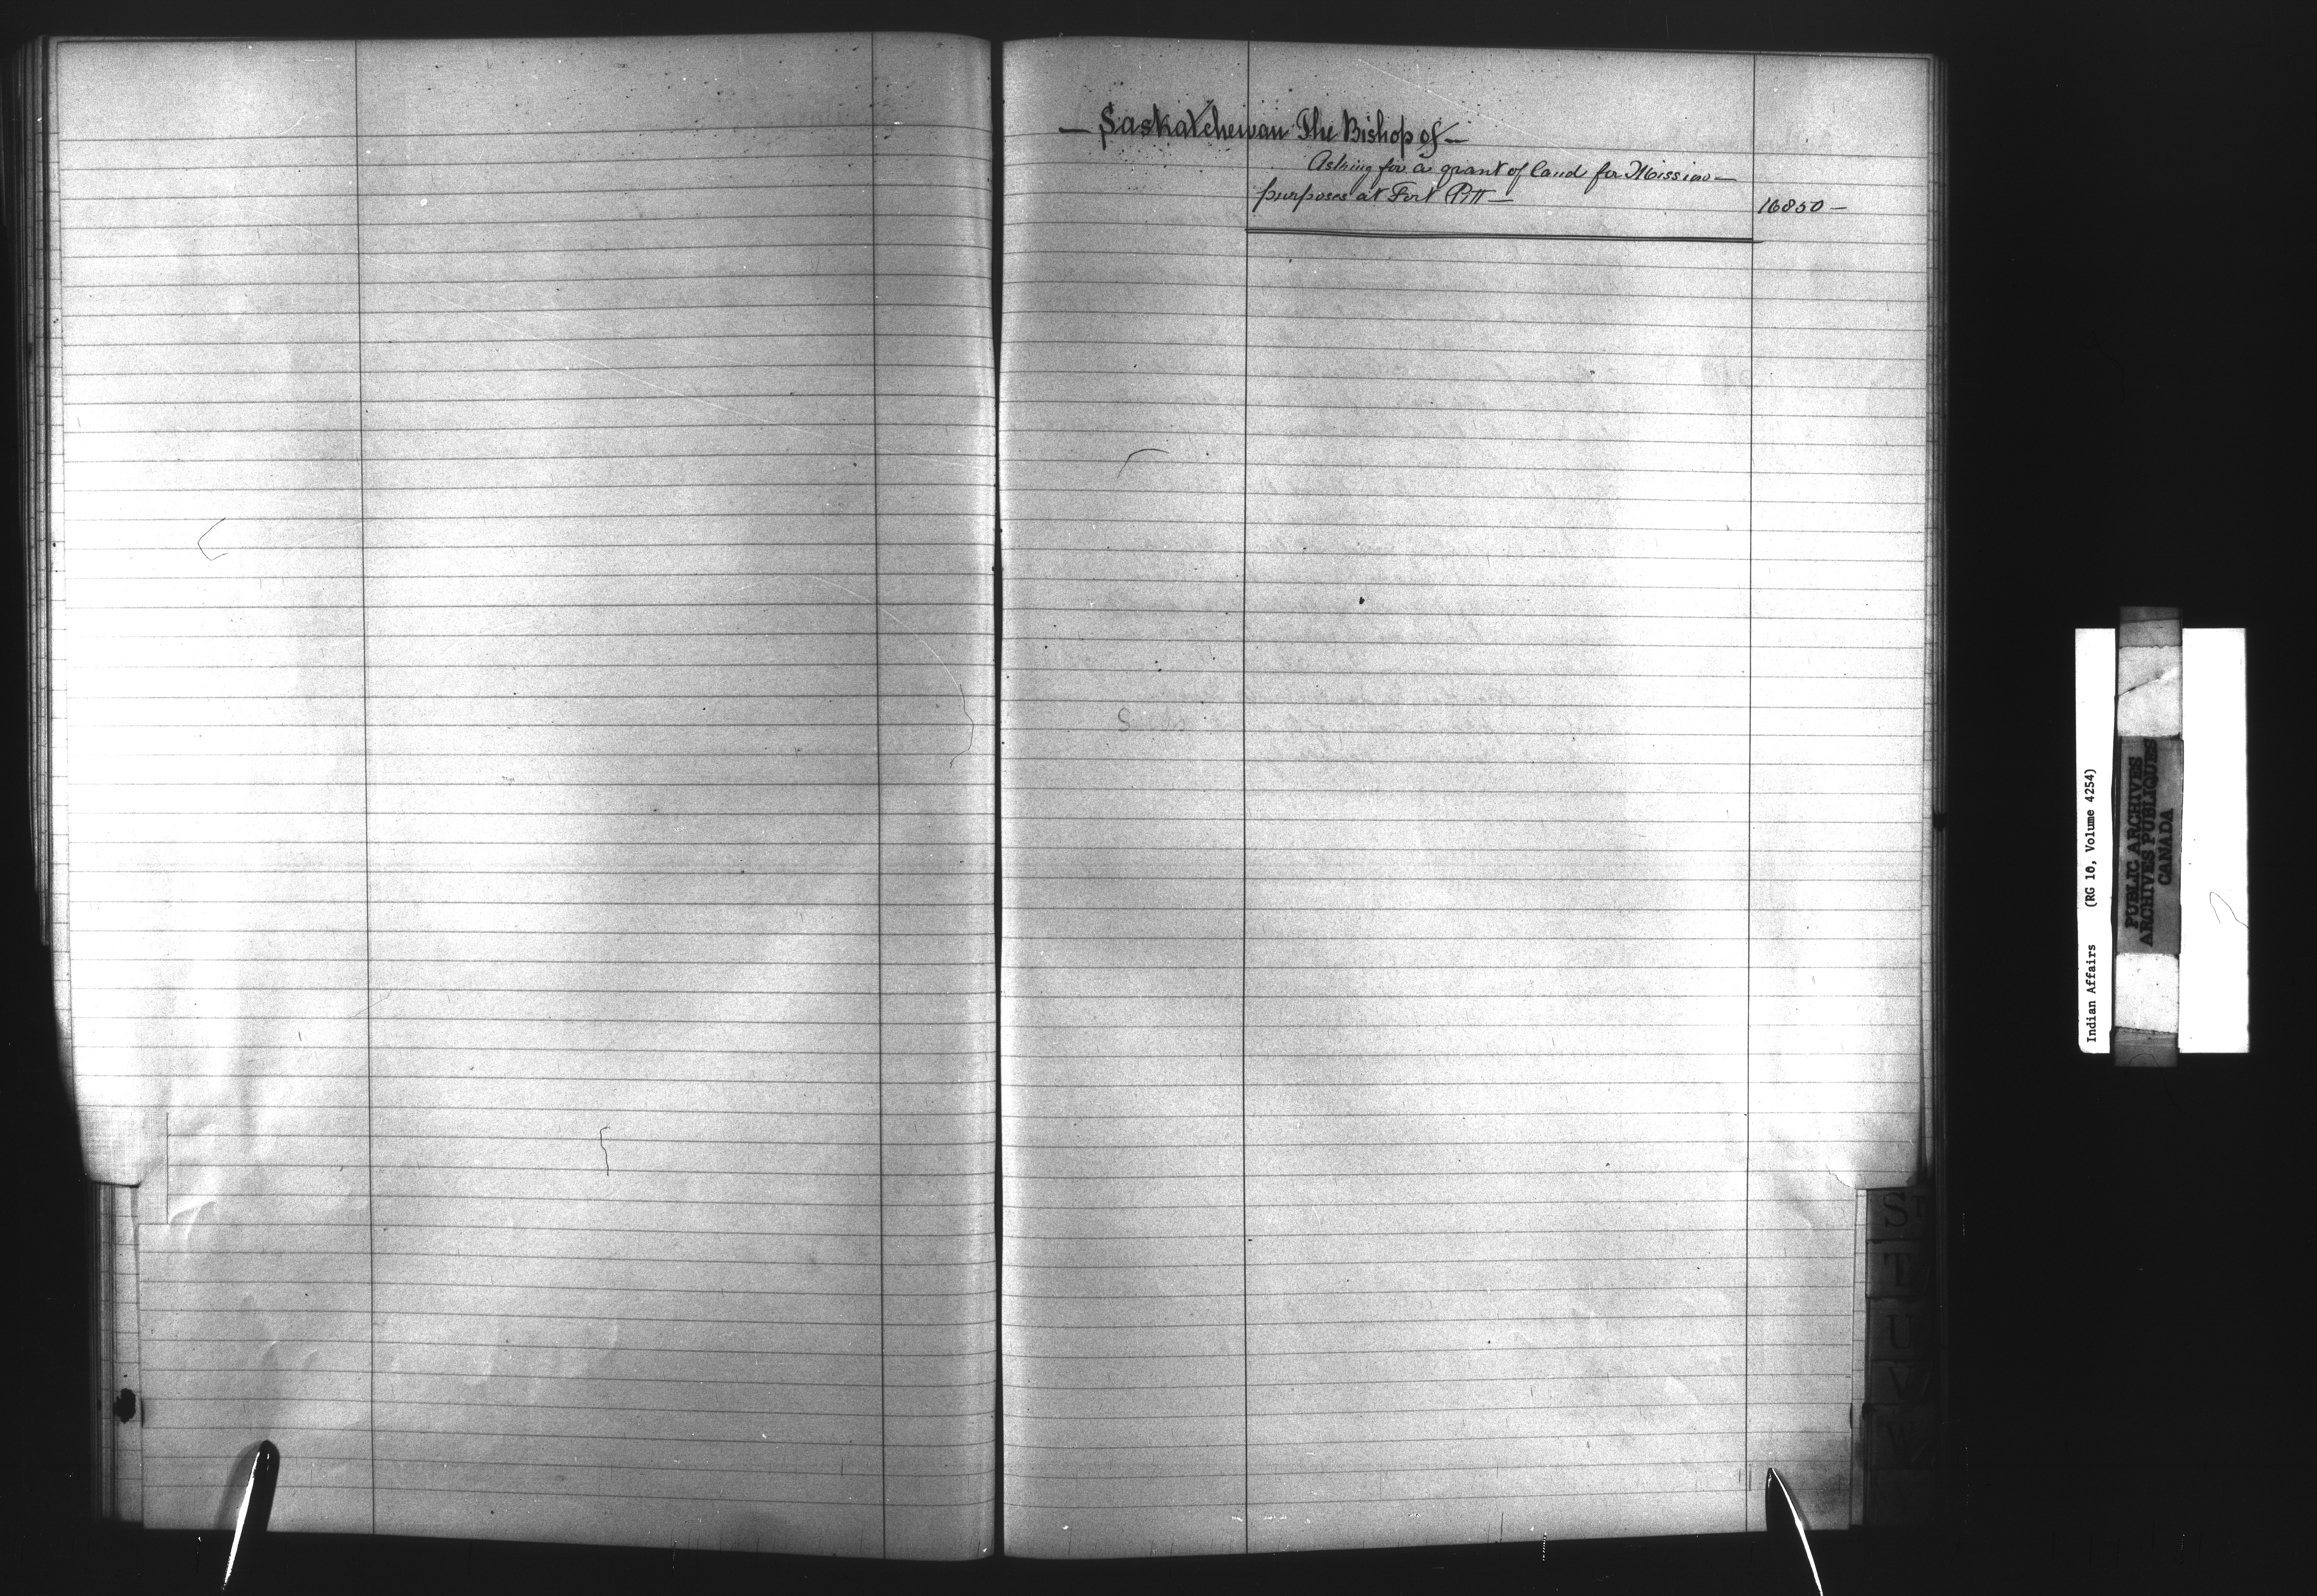 — Saskatchewan The Bishop of —
Asking for a grant of land for Mission —
purposes at Fort Pitt —
16850 —
S
T
U
V
W
Indian Affairs (RG 10, Volume 4254)
PUBLIC ARCHIVES
ARCHIVES PUBLIQUES
CANADA